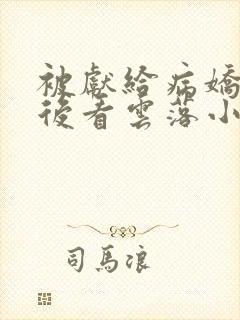 被獻給病嬌
後看雲落小
司馬浪